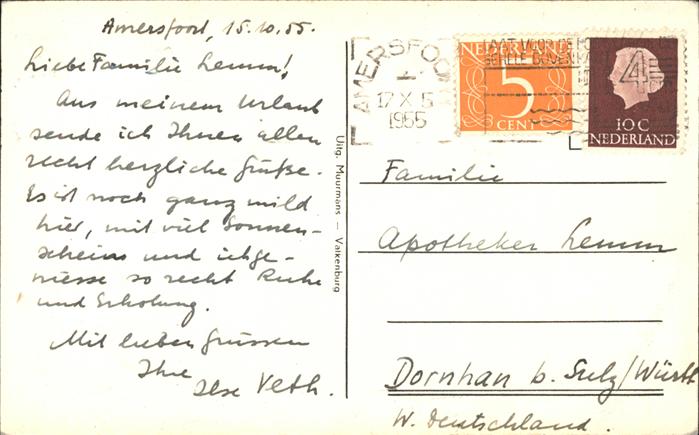 Amersfoort, 15.10.55.
Liebe Familie Lemm!,
Aus meinem Urlaub
sende ich Ihnen allen
recht herzliche Grüße.
Es ist noch ganz mild
hier, mit viel Sonnen-
schein und ich ge-
niesse so recht Ruhe
und Erholung.
Mit lieben Grüssen
Ihre
Ilse Veth.
Uitg. Muurmans — Valkenburg
AMERSFOORT
17 X 5
1955
NEDERLAND
5
CENT
4
10 C
NEDERLAND
Familie
Apotheker Lemm
Dornhan b. Sulz/Württ
W. Deutschland.